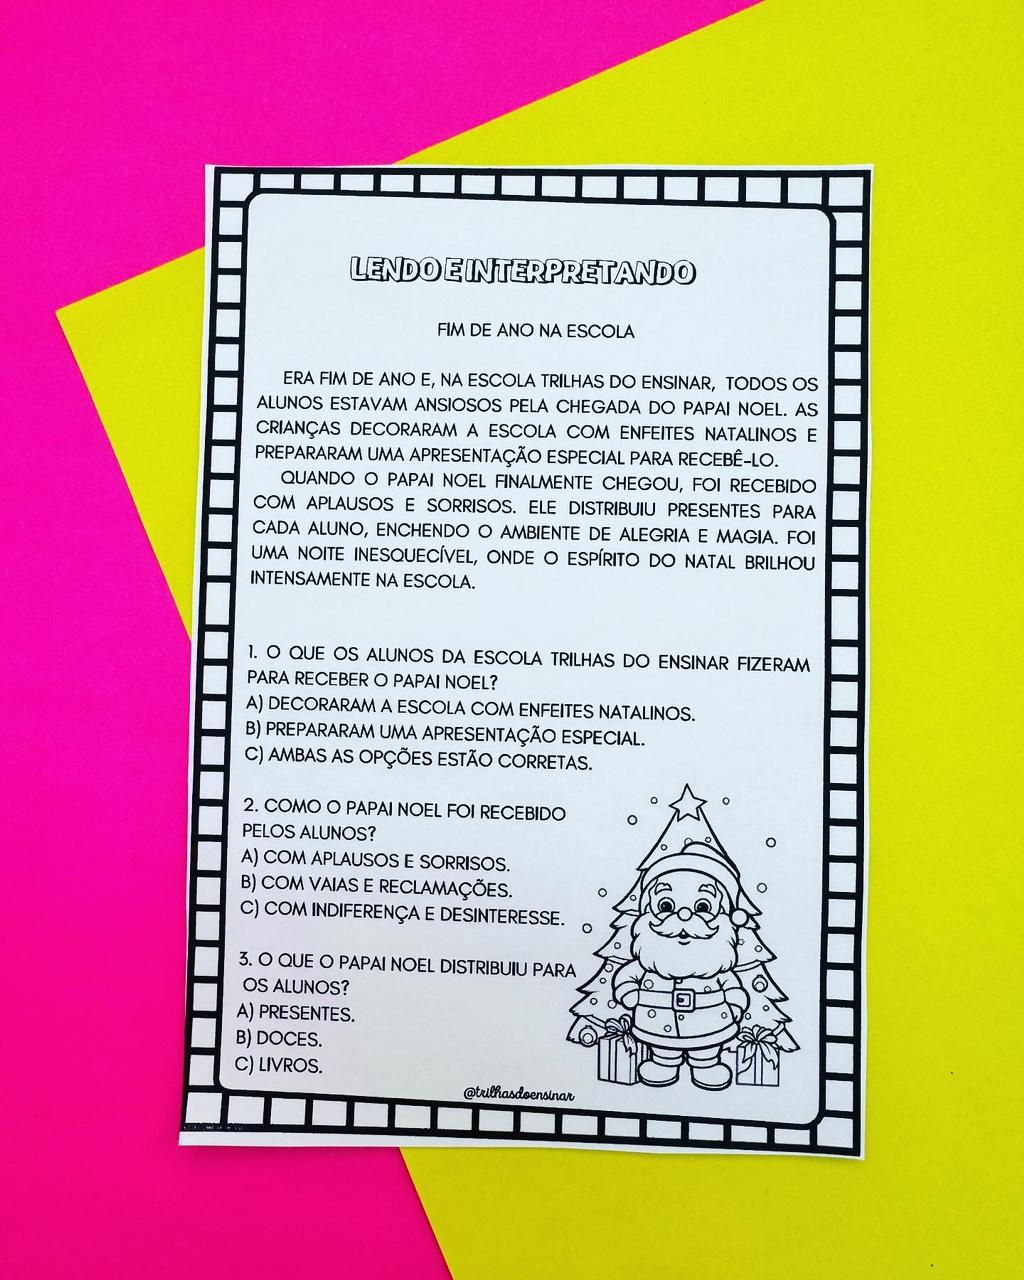 LENDO E INTERPRETANDO
FIM DE ANO NA ESCOLA
ERA FIM DE ANO E, NA ESCOLA TRILHAS DO ENSINAR, TODOS OS
ALUNOS ESTAVAM ANSIOSOS PELA CHEGADA DO PAPAI NOEL. AS
CRIANÇAS DECORARAM A ESCOLA COM ENFEITES NATALINOS E
PREPARARAM UMA APRESENTAÇÃO ESPECIAL PARA RECEBÊ-LO.
QUANDO O PAPAI NOEL FINALMENTE CHEGOU, FOI RECEBIDO
COM APLAUSOS E SORRISOS. ELE DISTRIBUIU PRESENTES PARA
CADA ALUNO, ENCHENDO O AMBIENTE DE ALEGRIA E MAGIA. FOI
UMA NOITE INESQUECÍVEL, ONDE O ESPÍRITO DO NATAL BRILHOU
INTENSAMENTE NA ESCOLA.
1. O QUE OS ALUNOS DA ESCOLA TRILHAS DO ENSINAR FIZERAM
PARA RECEBER O PAPAI NOEL?
A) DECORARAM A ESCOLA COM ENFEITES NATALINOS.
B) PREPARARAM UMA APRESENTAÇÃO ESPECIAL.
C) AMBAS AS OPÇÕES ESTÃO CORRETAS.
2. COMO O PAPAI NOEL FOI RECEBIDO
PELOS ALUNOS?
A) COM APLAUSOS E SORRISOS.
B) COM VAIAS E RECLAMAÇÕES.
C) COM INDIFERENÇA E DESINTERESSE.
3. O QUE O PAPAI NOEL DISTRIBUIU PARA
OS ALUNOS?
A) PRESENTES.
B) DOCES.
C) LIVROS.
@trilhasdoensinar